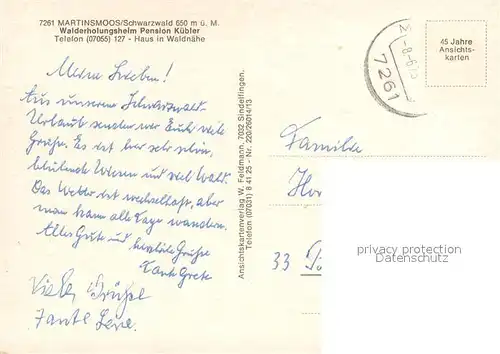 7261 MARTINSMOOS/Schwarzwald 650 m ü. M.
Walderholungsheim Pension Kübler
Telefon (07055) 127 - Haus in Waldnähe
Meine Lieben!
Aus unserem Schwarzwald-
Urlaub senden wir Euch viele
Grüße. Es ist hier sehr schön,
blühende Wiesen und viel Wald.
Das Wetter ist wechselhaft, aber
man kann alle Tage wandern.
Alles Gute und herzliche Grüße
Tante Grete
Viele Grüße
Tante Lene.
Ansichtskartenverlag W. Feldmann, 7032 Sindelfingen,
Telefon (07031) 8 41 25 - Nr. 220/26014/13
7261
45 Jahre
Ansichts-
karten
Familie
33
privacy protection
AnsichtskartenVersand.com